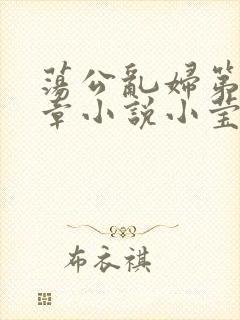 蕩公亂婦第
章小説小莹
布衣祺